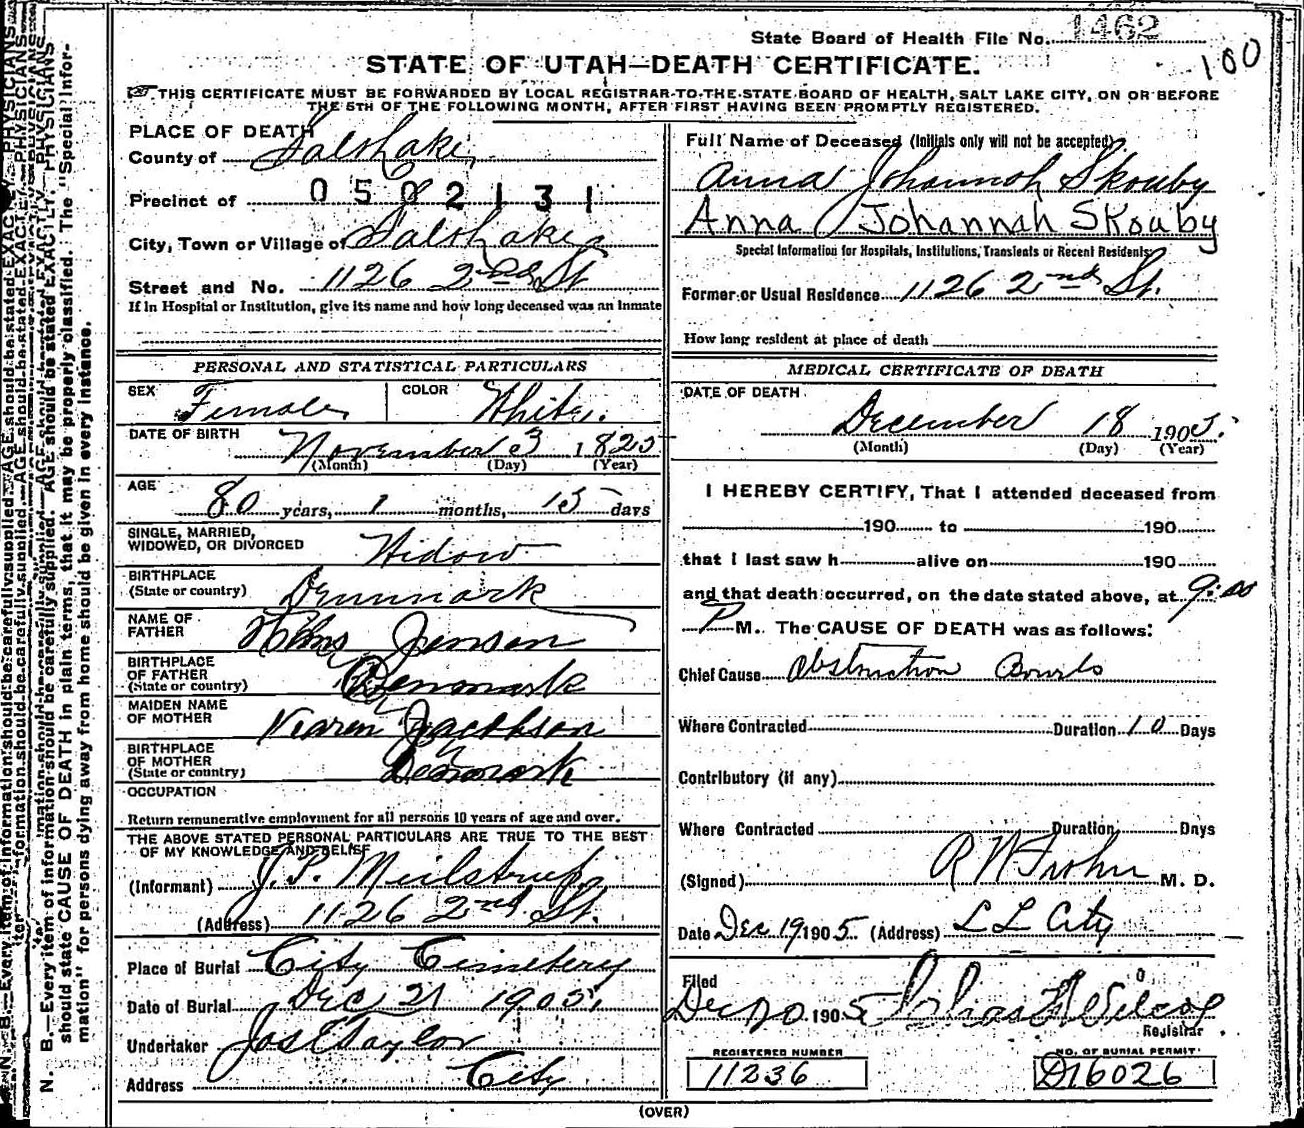 State Board of Health File No. 1462
100
STATE OF UTAH—DEATH CERTIFICATE.
THIS CERTIFICATE MUST BE FORWARDED BY LOCAL REGISTRAR TO THE STATE BOARD OF HEALTH, SALT LAKE CITY, ON OR BEFORE
THE 5TH OF THE FOLLOWING MONTH, AFTER FIRST HAVING BEEN PROMPTLY REGISTERED.
PLACE OF DEATH
County of Salt Lake
Precinct of 0502131
City, Town or Village of Salt Lake
Street and No. 1126 2nd St
If in Hospital or Institution, give its name and how long deceased was an Inmate
Full Name of Deceased (Initials only will not be accepted)
Anna Johannah Skouby
Anna Johannah Skouby
Special Information for Hospitals, Institutions, Transients or Recent Residents
Former or Usual Residence 1126 2nd St.
How long resident at place of death
PERSONAL AND STATISTICAL PARTICULARS
SEX Female COLOR White.
DATE OF BIRTH November 3 1825
(Month) (Day) (Year)
AGE 80 years, 1 months, 15 days
SINGLE, MARRIED,
WIDOWED, OR DIVORCED Widow
BIRTHPLACE
(State or country) Denmark
NAME OF
FATHER Hans Jensen
BIRTHPLACE
OF FATHER
(State or country) Denmark
MAIDEN NAME
OF MOTHER Karen Jacobson
BIRTHPLACE
OF MOTHER
(State or country) Denmark
OCCUPATION
Return remunerative employment for all persons 10 years of age and over.
THE ABOVE STATED PERSONAL PARTICULARS ARE TRUE TO THE BEST
OF MY KNOWLEDGE AND BELIEF
(Informant) J. P. Meilstrup
(Address) 1126 2nd St.
Place of Burial City Cemetery
Date of Burial Dec 21 1905,
Undertaker Jos E Taylor
Address City
MEDICAL CERTIFICATE OF DEATH
DATE OF DEATH
December 18 1905.
(Month) (Day) (Year)
I HEREBY CERTIFY, That I attended deceased from
190 to 190
that I last saw h alive on 190
and that death occurred, on the date stated above, at 9:00
P M. The CAUSE OF DEATH was as follows:
Chief Cause Obstruction Bowels
Where Contracted Duration 10 Days
Contributory (if any)
Where Contracted Duration Days
(Signed) M. D.
Date Dec 19 1905. (Address) S L City
Filed
Dec 20 1905 Chas F Wilcox
Registrar
REGISTERED NUMBER
11236
NO. OF BURIAL PERMIT
D16026
(OVER)
N. B.—Every item of information should be carefully supplied. AGE should be stated EXACTLY. PHYSICIANS
should state CAUSE OF DEATH in plain terms, that it may be properly classified. The "Special Infor-
mation" for persons dying away from home should be given in every instance.